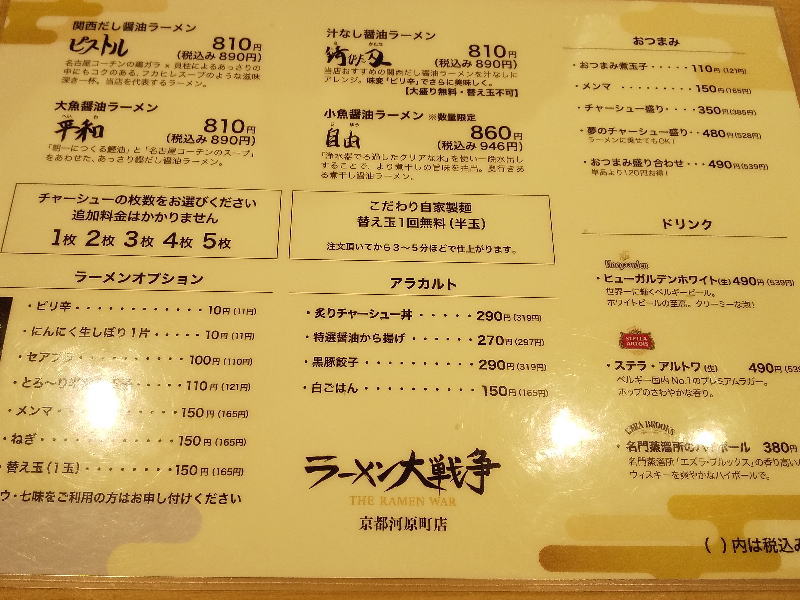 関西だし醤油ラーメン
ピストル
810円
(税込み890円)
名古屋コーチンの鶏ガラ × 貝柱によるあっさりの
中にもコクのある、フカヒレスープのような滋味
深き一杯。当店を代表するラーメン。
大魚醤油ラーメン
へいわ
平和
810円
(税込み 890円)
「朝一につくる鰹油」と「名古屋コーチンのスープ」
をあわせた、あっさり鰹だし醤油ラーメン。
汁なし醤油ラーメン
810円
(税込み 890円)
当店おすすめの関西だし醤油ラーメンを汁なしに
アレンジ。味変「ピリ辛」でさらに美味しく。
【大盛り無料・替え玉不可】
小魚醤油ラーメン ※数量限定
じゆう
自由
860円
(税込み 946円)
「浄水器でろ過したクリアな水」を使い一晩水出し
することで、より煮干しの旨味を抽出。奥行きあ
る煮干し醤油ラーメン。
チャーシューの枚数をお選びください
追加料金はかかりません
1枚 2枚 3枚 4枚 5枚
こだわり自家製麺
替え玉1回無料(半玉)
注文頂いてから3〜5分ほどで仕上がります。
ラーメンオプション
・ピリ辛・・・・・・・・・10円(11円)
・にんにく生しぼり1片・・・・・10円(11円)
・セアブラ 100円(110円)
・とろ〜り 110円(121円)
・メンマ 150円(165円)
・ねぎ・ ・150円(165円)
・替え玉(1玉)・・・・・・・150円(165円)
ウ・七味をご利用の方はお申し付けください
アラカルト
・炙りチャーシュー丼・・・・・290円(319円)
・特選醤油から揚げ・・・・・・270円(297円)
・黒豚餃子・・・・・・・・・・290円(319円)
・白ごはん・・・・・・・・・・150円(165円)
ラーメン大戦争
THE RAMEN WAR
京都河原町店
おつまみ
・おつまみ煮玉子・・・・・110円(121円)
・メンマ・・・・・・・・・150円(165円)
・チャーシュー盛り・・・・350円(385円)
・夢のチャーシュー盛り・・480円(528円)
ラーメンに乗せてもOK!
・おつまみ盛り合わせ・・・490円(539円)
単品より120円お得!
ドリンク
Hoegaarden
・ヒューガルデンホワイト(生)490円(539円)
世界一に輝くベルギービール。
ホワイトビールの至高。クリーミーな泡!
STELLA
ARTOIS
・ステラ・アルトワ(生) 490円(539
ベルギー国内No.1のプレミアムラガー。
ホップのさわやかな香り。
EZRA BROOKS
・名門蒸溜所のハイボール 380円
名門蒸溜所「エズラ・ブルックス」の香り高い
ウィスキーを爽やかなハイボールで。
( )内は税込み